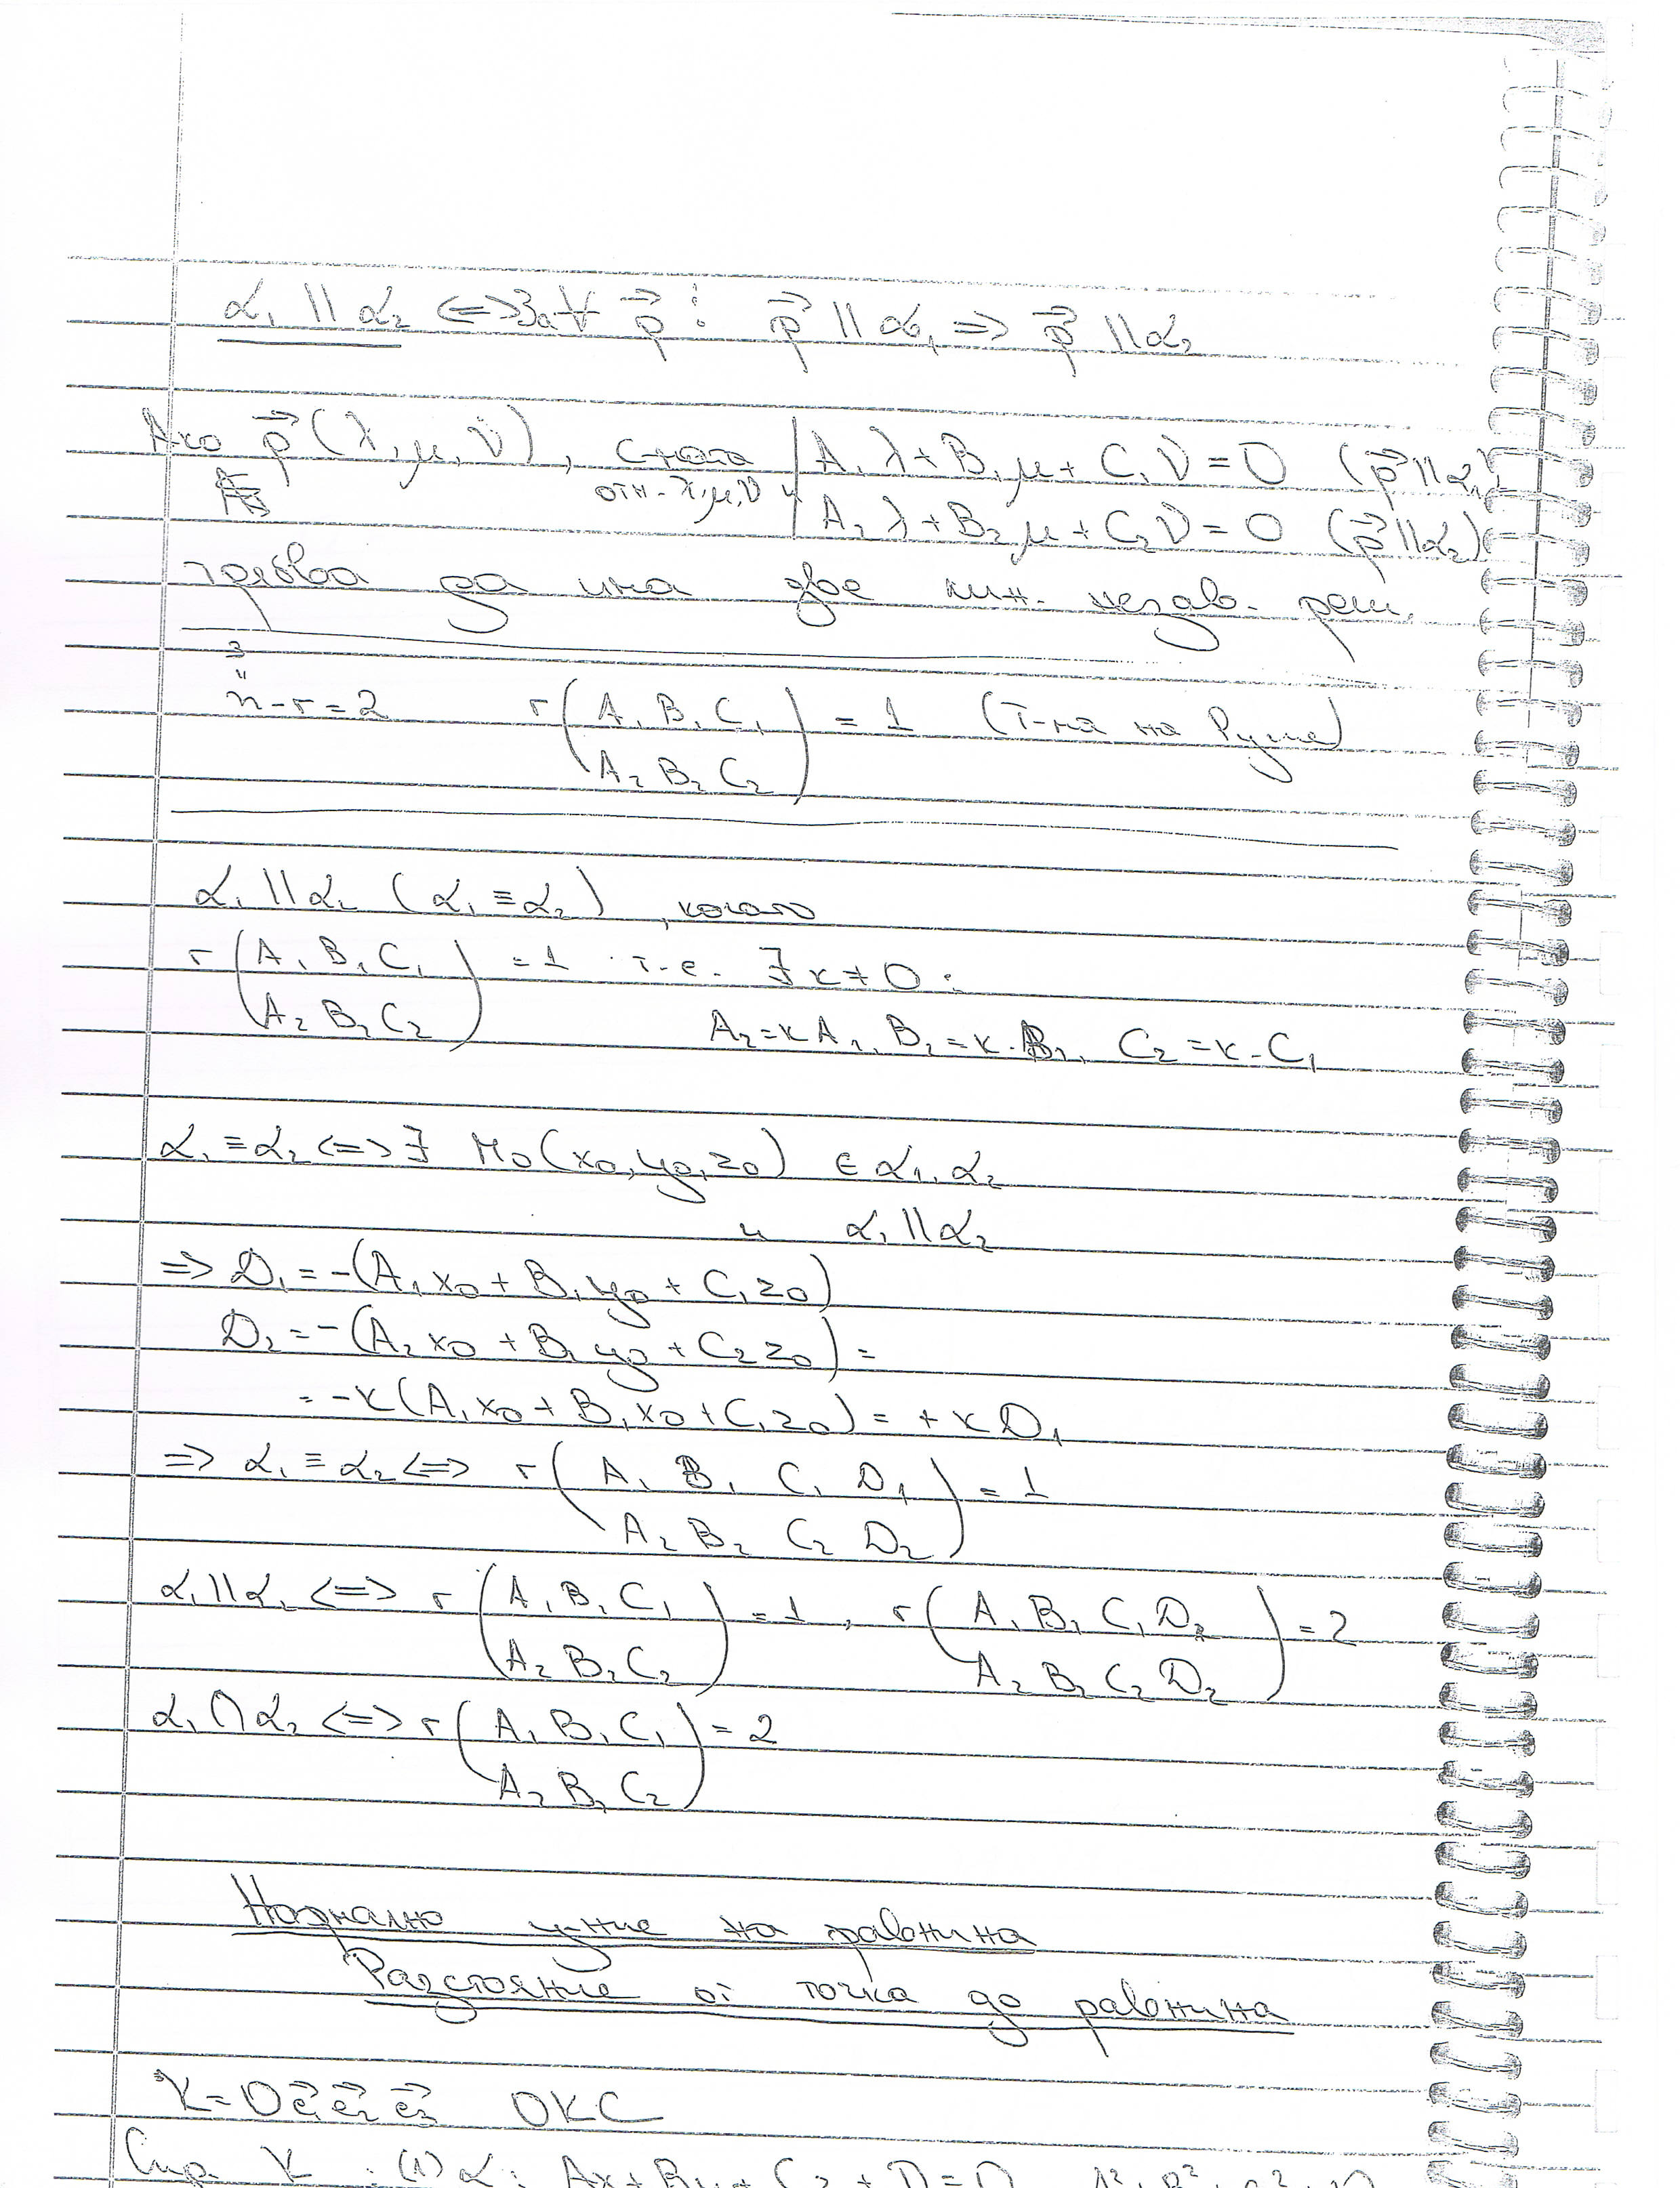 α₁ || α₂ <=> За ∀ p⃗ : p⃗ || α₁ => p⃗ || α₂
Ако p⃗ (λ, μ, ν), с-мата | A₁λ + B₁μ + C₁ν = 0 (p⃗ || α₁)
отн. λ, μ, ν | A₂λ + B₂μ + C₂ν = 0 (p⃗ || α₂)
трябва да има две лин. незав. реш.
3
"
n - r = 2 r ( A₁ B₁ C₁ ) = 1 (Т-ма на Руше)
( A₂ B₂ C₂ )
α₁ || α₂ (α₁ ≡ α₂), когато
r ( A₁ B₁ C₁ ) = 1 т.е. ∃ k ≠ 0 :
( A₂ B₂ C₂ ) A₂ = k A₁, B₂ = k . B₁, C₂ = k . C₁
α₁ ≡ α₂ <=> ∃ M₀ (x₀, y₀, z₀) ∈ α₁, α₂
и α₁ || α₂
=> D₁ = -(A₁x₀ + B₁y₀ + C₁z₀)
D₂ = -(A₂x₀ + B₂y₀ + C₂z₀) =
= -k(A₁x₀ + B₁x₀ + C₁z₀) = + k D₁
=> α₁ ≡ α₂ <=> r ( A₁ B₁ C₁ D₁ ) = 1
( A₂ B₂ C₂ D₂ )
α₁ || α₂ <=> r ( A₁ B₁ C₁ ) = 1, r ( A₁ B₁ C₁ D₁ ) = 2
( A₂ B₂ C₂ ) ( A₂ B₂ C₂ D₂ )
α₁ ∩ α₂ <=> r ( A₁ B₁ C₁ ) = 2
( A₂ B₂ C₂ )
Нормално у-ние на равнина
Разстояние от точка до равнина
K = O e⃗₁ e⃗₂ e⃗₃ ОКС
Спр. K : (1) α : Ax + By + Cz + D = 0